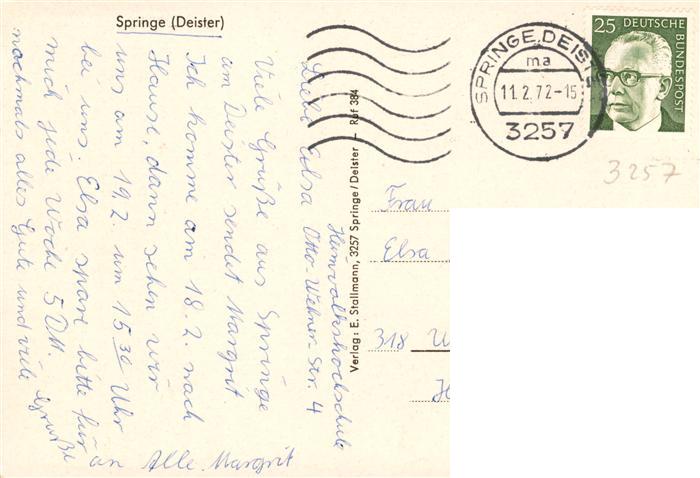 Springe (Deister)
Heimvolkshochschule
Liebe Elsa Otto-Wehner-Str. 4
Viele Grüße aus Springe
am Deister sendet Margrit.
Ich komme am 18.2. nach
Hause, dann sehen wir
uns am 19.2. um 15 30 Uhr
bei uns. Elsa spare bitte für
mich jede Woche 5 DM.
nochmals alles Gute und viele Grüße
an Alle Margrit
Verlag: E. Stallmann, 3257 Springe/Deister - Ruf 384
SPRINGE, DEIST
ma
11.2.72-15
3257
25 DEUTSCHE BUNDESPOST
3257
Frau
Elsa
318 W